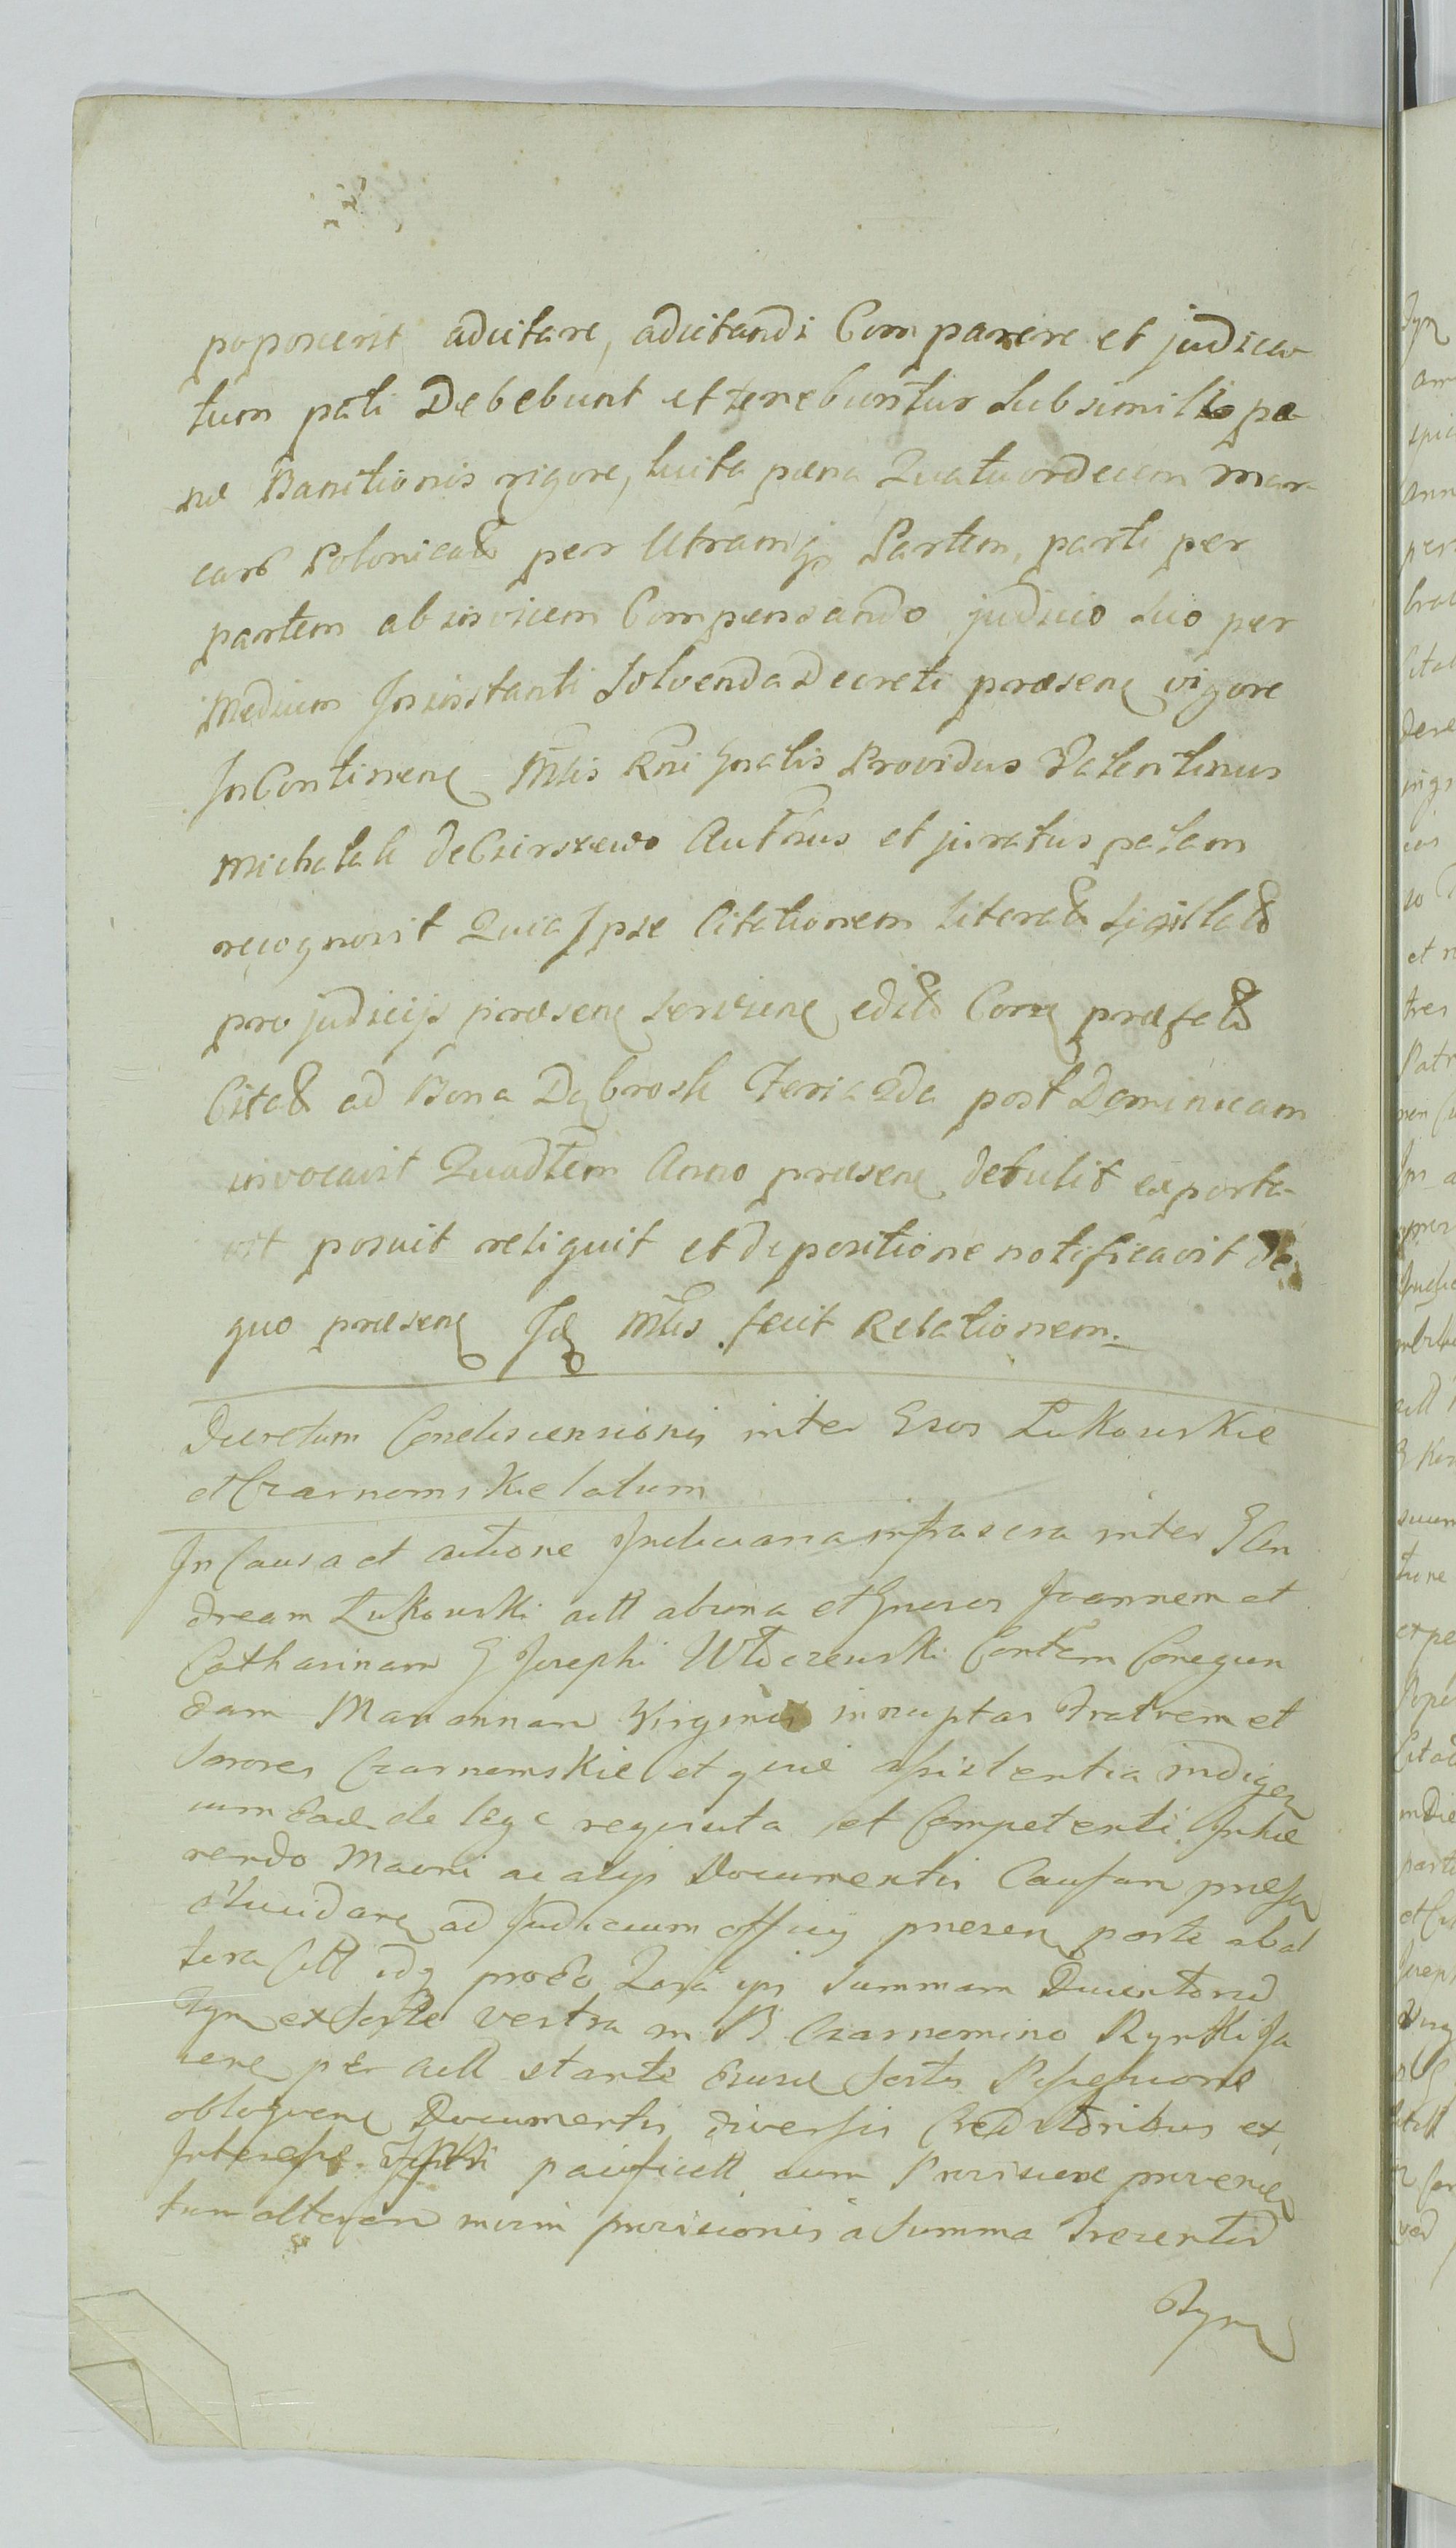 poposcerit adcitare, adcitandi Comparere et judica-
tum pati Debebunt et tenebuntur sub simili pæ-
næ Banitionis rigore, luita pæna Quatuordecim mar-
car Polonical per Utramq Partem, parti per
partem ab invicem Compensando judicio suo per
Medium Ininstanti Solvenda Decreti præsen vigore
InContinen Mtis Rni Gnalis Providus Valentinus
Michalak de Cierszewo Authus et juratus palam
recognovit Quia Ipse Citationem literat sigillat
pro judicijs præsen servien edit Coru præfat
Citat ad Bona Dąbrosk Feria 2da post Dominicam
invocavit Quadlem Anno præsen detulit exporta-
vit posuit reliquit et depositione notificavit de
quo præsen Id Mtis fecit Relationem.
Decretum Condescensionis inter Gsos Łukowskie
et Czarnomskie latum
In Causa et actione Judiciaria infrascra inter G An
dream Łukowski actt ab una et Gnesos Joannem et
Catharinam G Josephi Włoczewski Contem Conegun
dam Mariannam Virgines innuptas Fratrem et
Sorores Czarnomskie et quæ assistentia indigen
cum Ead de lege requisita et Competenti Inhæ
rendo Macni ac alijs Documentis Causam præsen
elucidan ad Judicium officij presen parte ab al
tera Citt idq pro eo Quia ipi Summam Ducentord
Tym ex Sorte vestra in B Czarnomino Rynki Ja
cen per actt stante Suæ Sortis Possessione
obloquen Documentis diversis Creditoribus ex
pacificatt cum Provisione provenien
tum alteram provisionis a Summa Trecentord
Tym